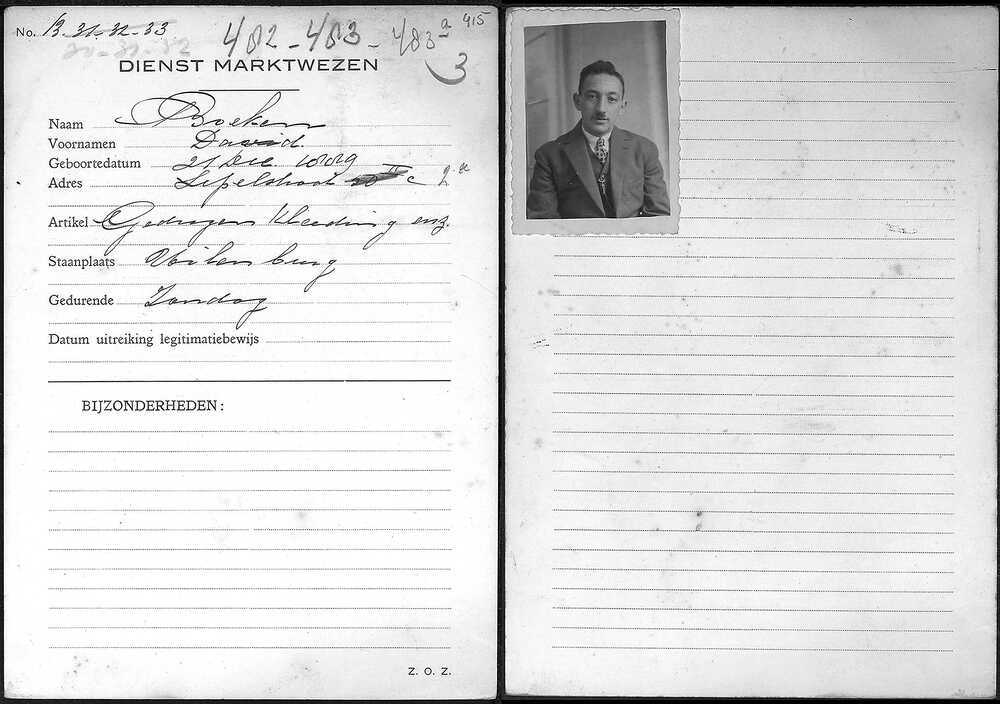 No. 13.31-32-33
402-403-403a 915
3
DIENST MARKTWEZEN
Naam Boeken
Voornamen David.
Geboortedatum 21 Dec.
Adres Lepelstraat
Artikel Gedragen kleeding enz.
Staanplaats Uilenburg
Gedurende Zondag
Datum uitreiking legitimatiebewijs
BIJZONDERHEDEN:
Z. O. Z.